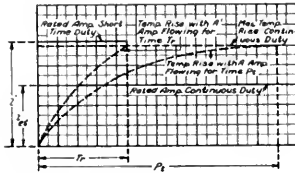 Rated Amp. Short
Time Duty
Temp. Rise with A'
Amp Flowing for
Time Tr
Max. Temp.
Rise Contin-
uous Duty
Temp Rise with A Amp
Flowing for Time Pt
Rated Amp Continuous Duty
Tr
Pt